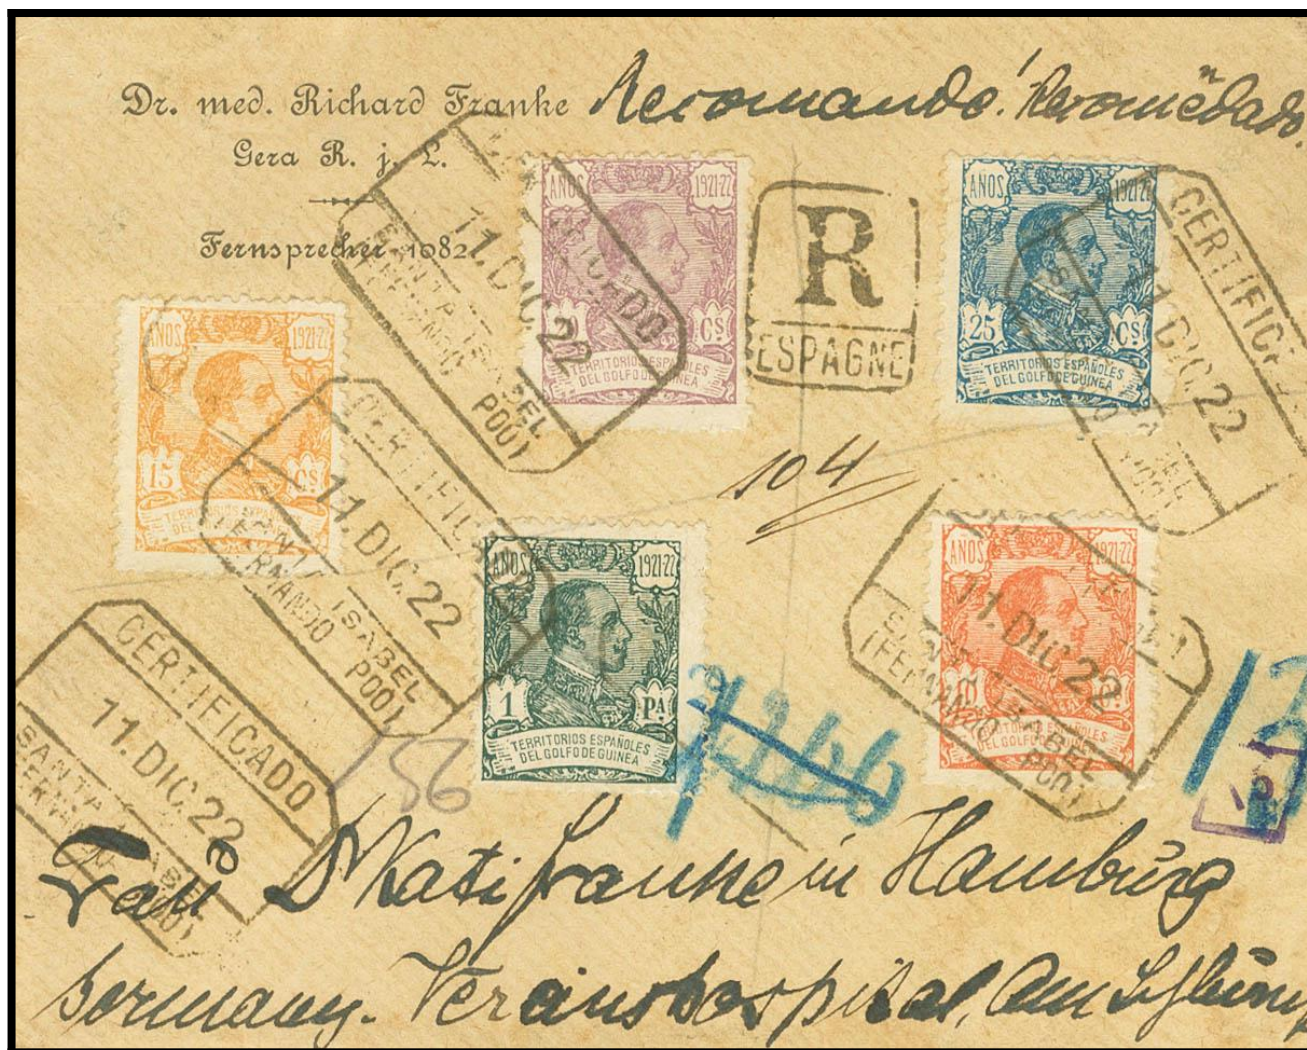 Dr. med. Richard Franke
Gera R. j. L.
Fernsprecher 1082
Recomando! Recomēdado.
AÑOS 1921-22
CS
TERRITORIOS ESPAÑOLES
DEL GOLFO DE GUINEA
R
ESPAGNE
AÑOS 1921-22
25 CS
TERRITORIOS ESPAÑOLES
DEL GOLFO DE GUINEA
CERTIFICADO
11.DIC.22
SANTA ISABEL
(FERNANDO POO)
CERTIFICADO
11.DIC.22
SANTA ISABEL
(FERNANDO POO)
AÑOS 1921-22
15 CS
TERRITORIOS ESPAÑOLES
DEL GOLFO DE GUINEA
104
CERTIFICADO
11.DIC.22
SANTA ISABEL
(FERNANDO POO)
AÑOS 1921-22
1 PA
TERRITORIOS ESPAÑOLES
DEL GOLFO DE GUINEA
AÑOS 1921-22
TERRITORIOS ESPAÑOLES
DEL GOLFO DE GUINEA
11.DIC.22
SANTA ISABEL
(FERNANDO POO)
CERTIFICADO
11.DIC.22
SANTA ISABEL
(FERNANDO POO)
156
Frau Dr Kati Franke in Hamburg
Germany. Vereinshospital, Am Schlump